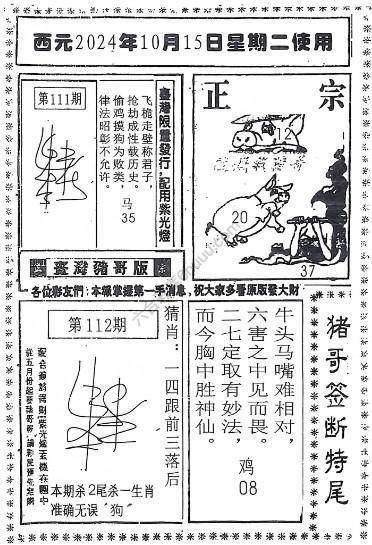 西元2024年10月15日星期二使用
第111期
飞桅走壁称君子，
抢劫成性载历史。
偷鸡摸狗为败类，
律法昭彰不允许。
马
35
臺灣限量發行，配用紫光燈
正宗
12
20
37
臺灣豬哥版
各位彩友們：本報掌握第一手消息，祝大家多看原版發大財
第112期
本期杀2尾杀一生肖
准确无误“狗”
猜肖：一四跟前三落后
牛头马嘴难相对，
六害之中见而畏。
二七定取有妙法，
而今胸中胜神仙。
鸡
08
猪哥签断特尾